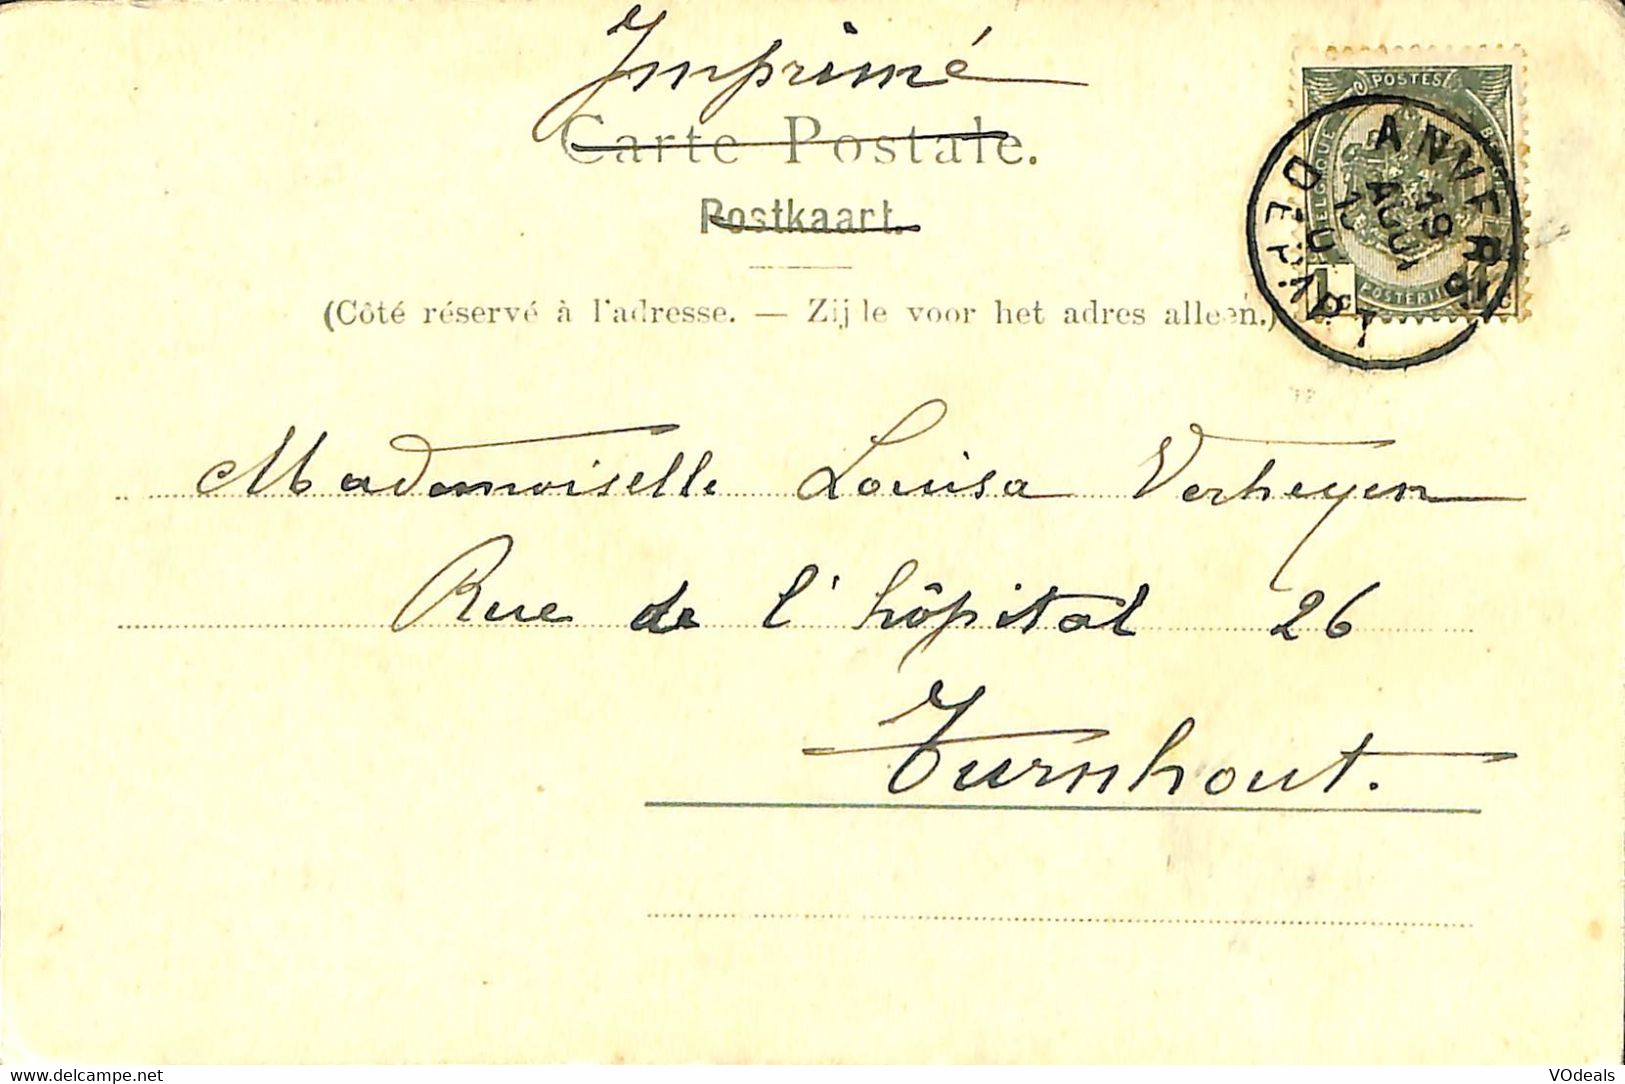 Imprimé
Carte Postale.
Postkaart.
(Côté réservé à l'adresse. — Zijde voor het adres alleen.)
POSTES
BELGIQUE
POSTERIJEN
ANVERS
DEPART
19
AOUT
Mademoiselle Louisa Verheyen
Rue de l'hôpital 26
Turnhout.
www.delcampe.net
VOdeals